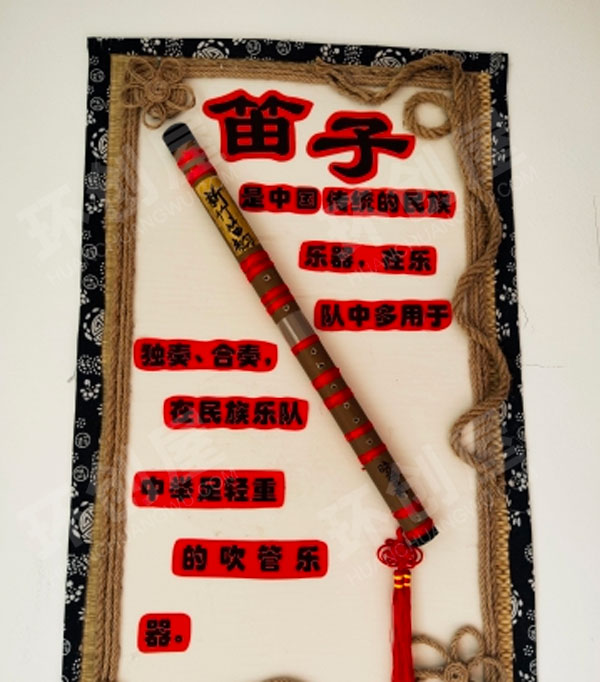 笛子
是中国传统的民族
乐器，在乐
队中多用于
独奏、合奏，
在民族乐队
中举足轻重
的吹管乐
器。
环创屋